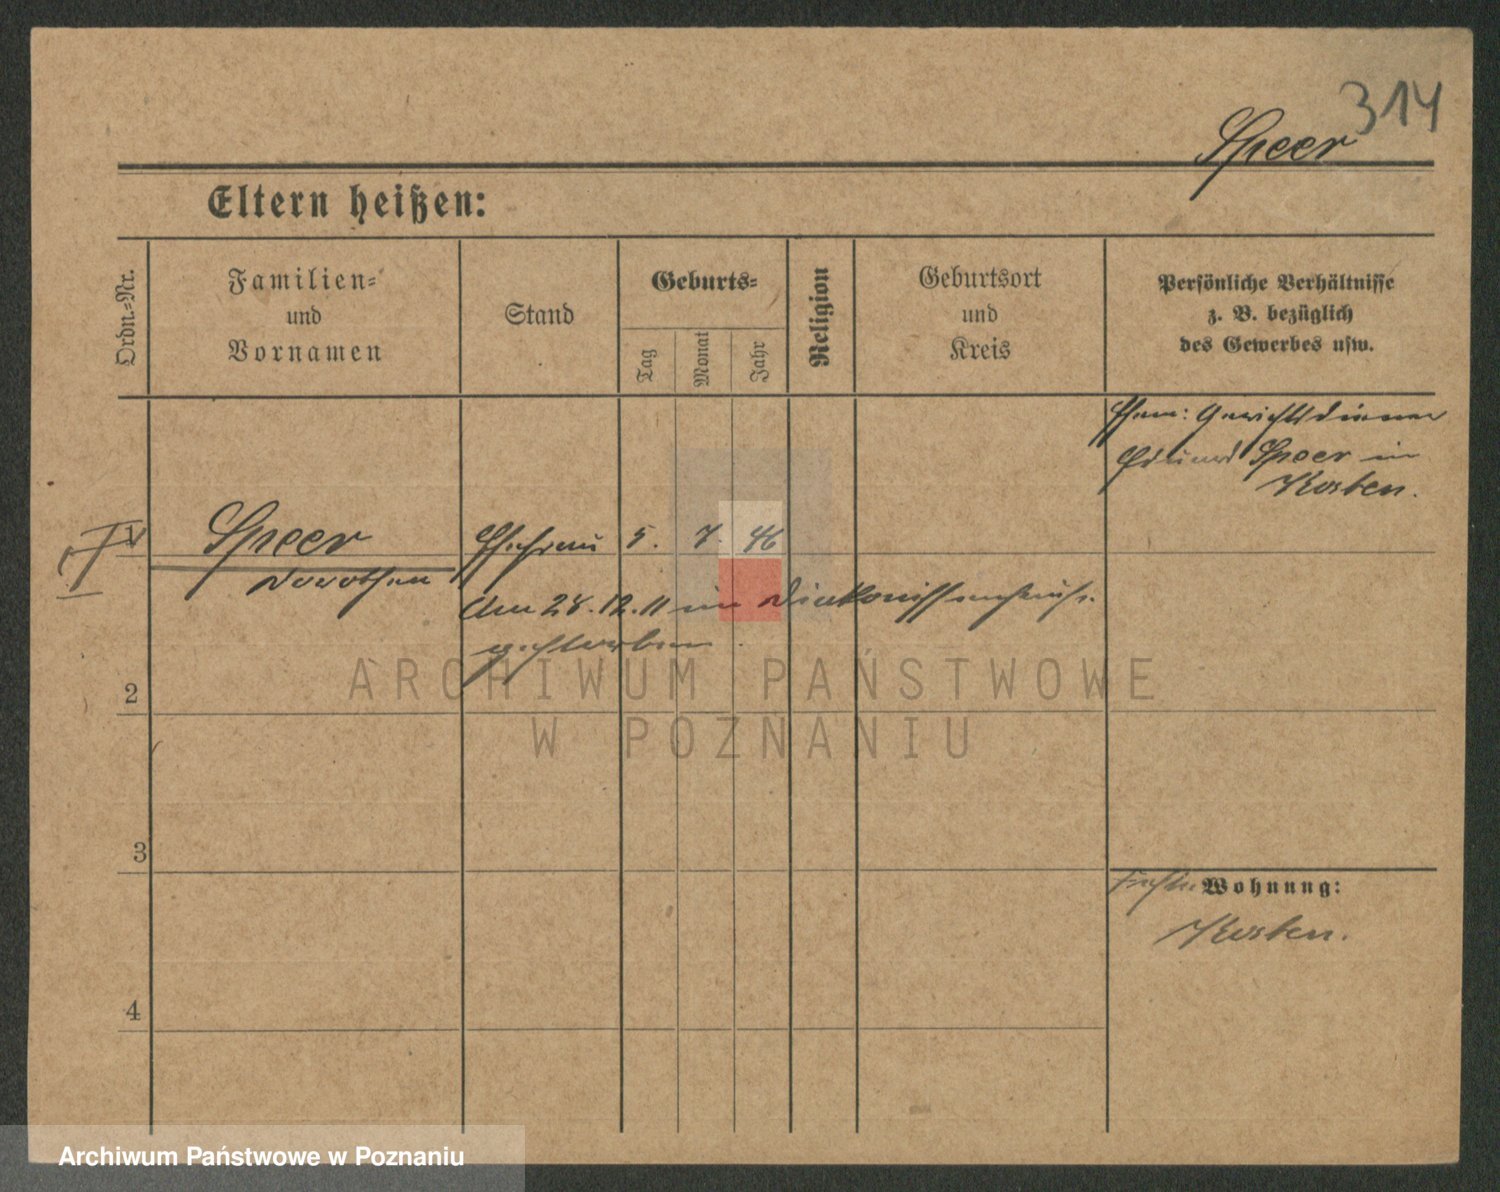 314
Speer
Eltern heißen:
Ordn.-Nr.
Familien-
und
Vornamen
Stand
Geburts-
Tag
Monat
Jahr
Religion
Geburtsort
und
Kreis
Persönliche Verhältnisse
z. B. bezüglich
des Gewerbes usw.
Ehem: Gerichtsdiener
Eduard Speer in
Kosten.
1
Speer
Dorothea
Ehefrau 5. 7. 46
Am 28.12.11 im Diakonissenhause
gestorben.
2
3
4
Wohnung:
Kosten.
ARCHIWUM PAŃSTWOWE
W POZNANIU
Archiwum Państwowe w Poznaniu